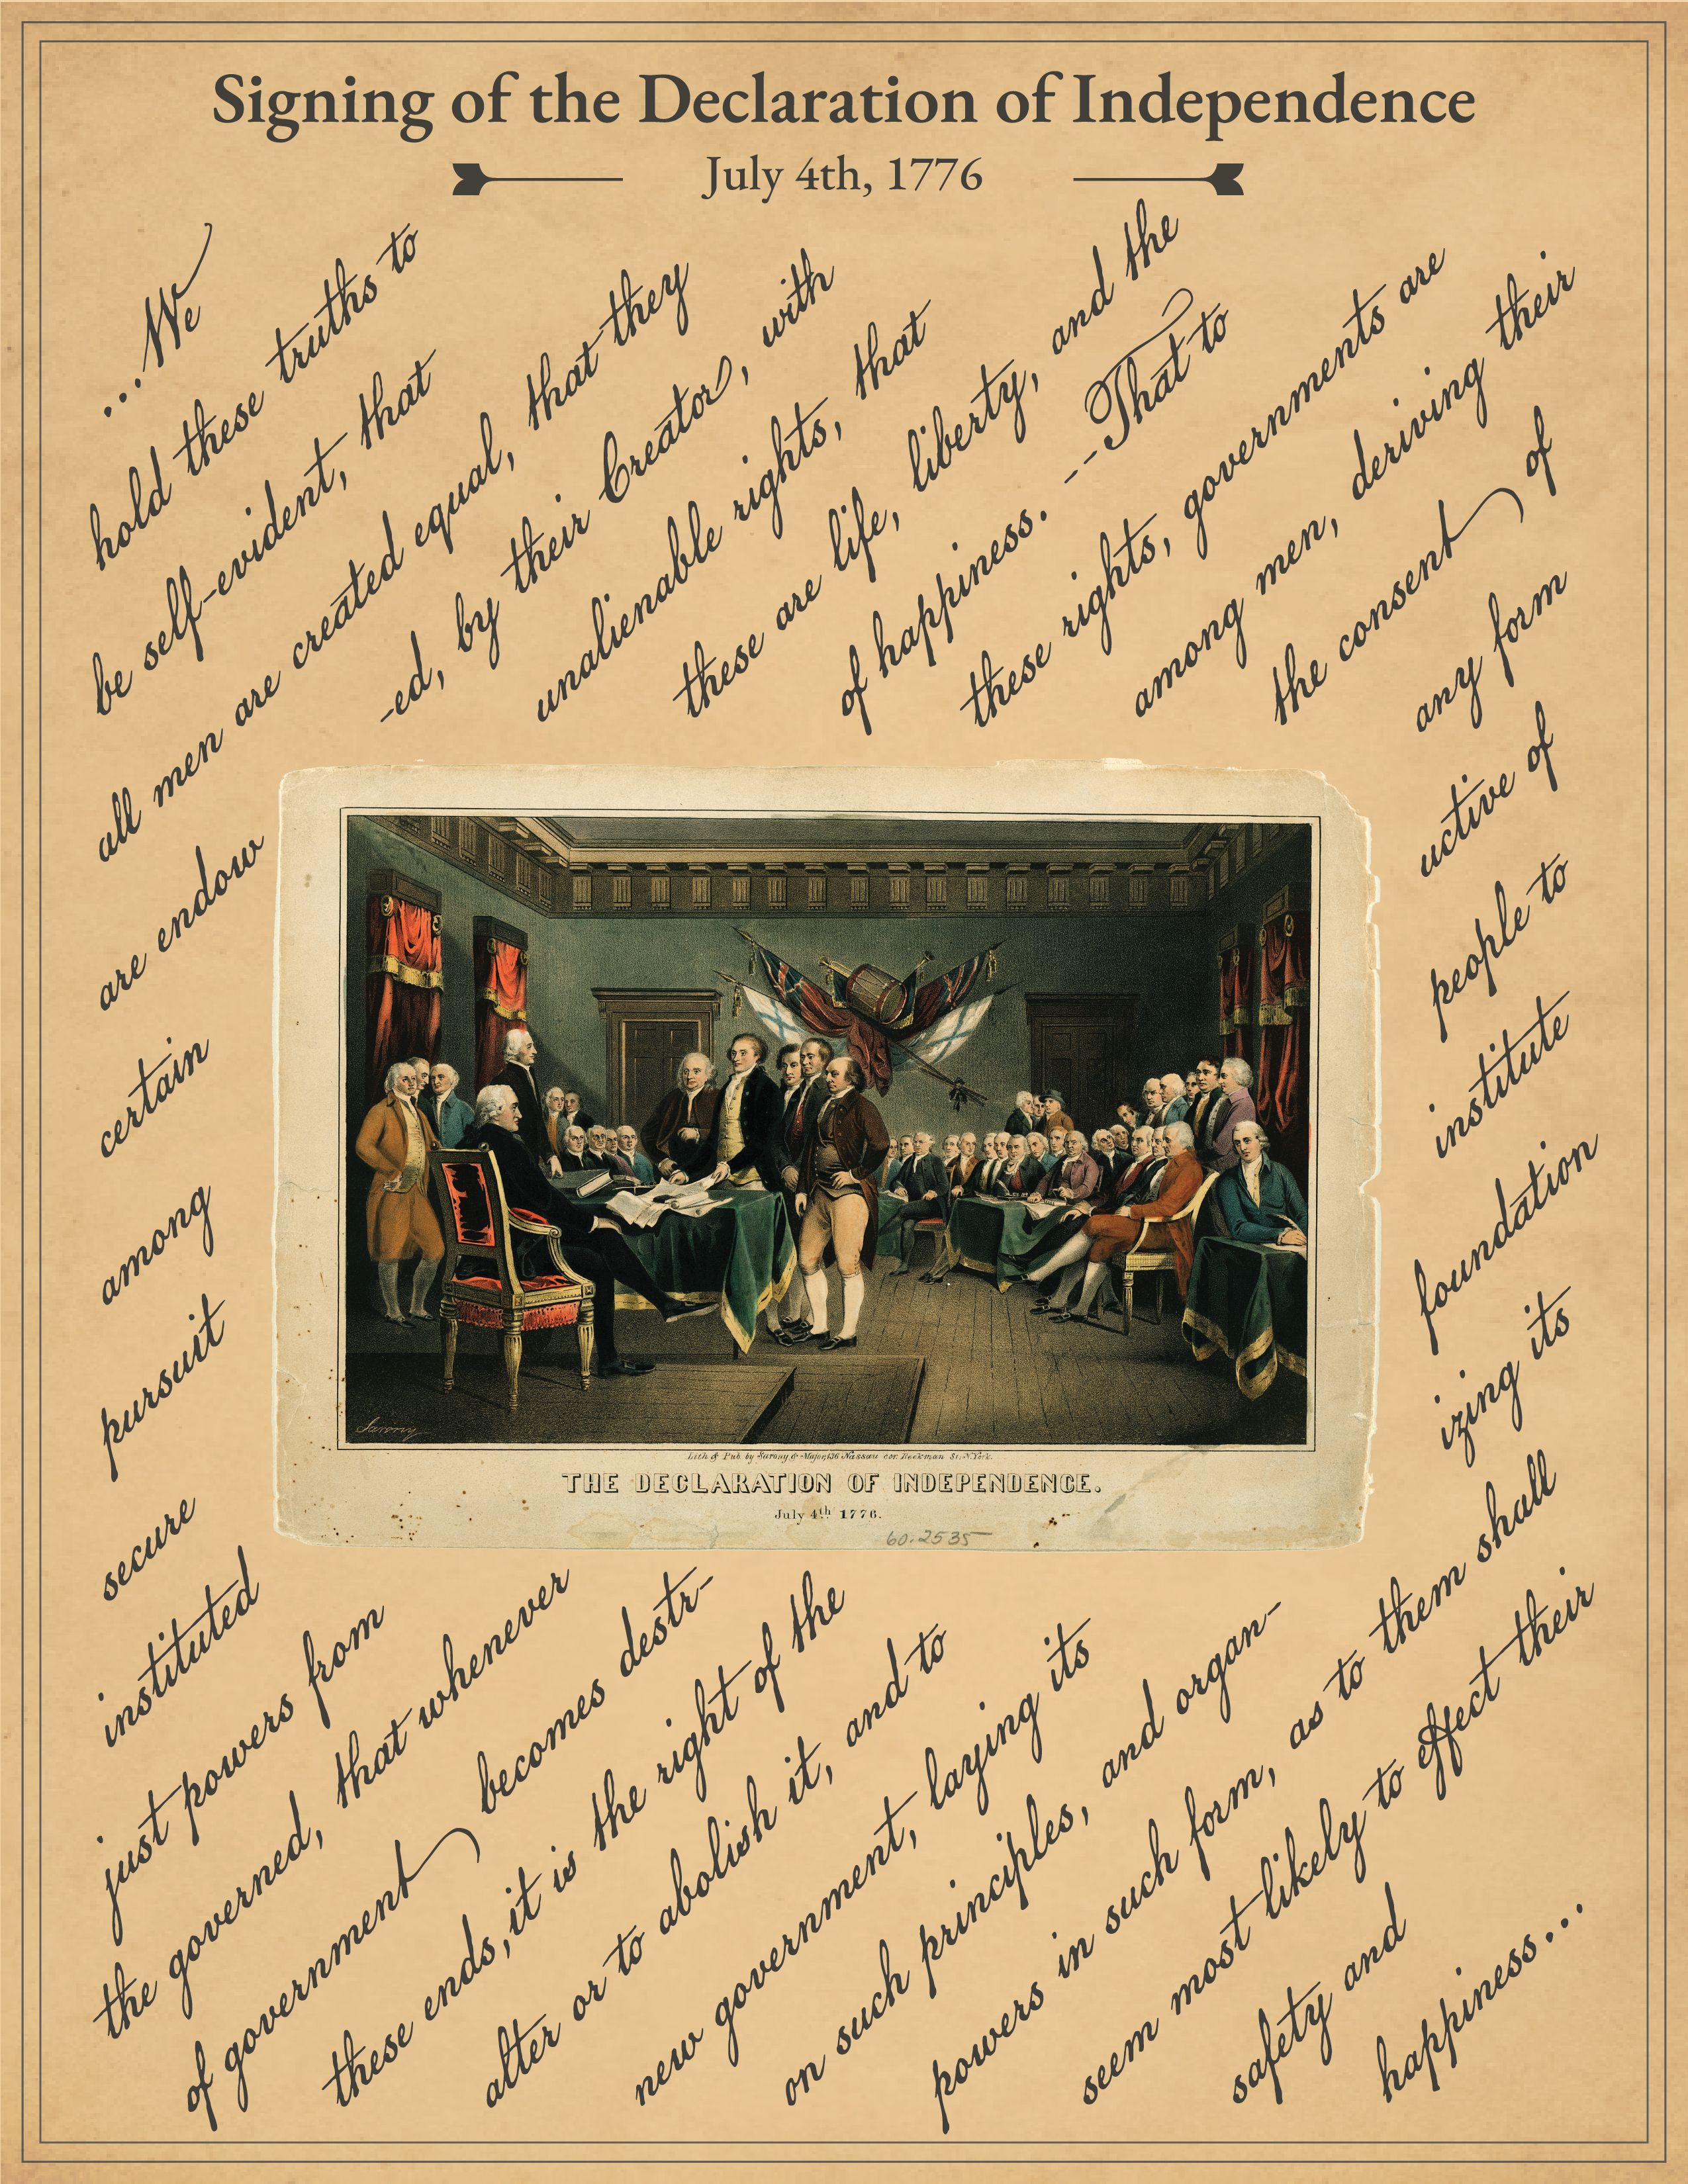 Signing of the Declaration of Independence
July 4th, 1776
...We
hold these truths to
be self-evident, that
all men are created equal, that they
are endow -ed, by their Creator, with
certain unalienable rights, that
among these are life, liberty, and the
pursuit of happiness. --That to
secure these rights, governments are
instituted among men, deriving their
just powers from the consent of
the governed, that whenever any form
of government becomes destr- uctive of
these ends, it is the right of the people to
alter or to abolish it, and to institute
new government, laying its foundation
on such principles, and organ- izing its
powers in such form, as to them shall
seem most likely to effect their
safety and
happiness...
Sarony
Lith & Pub. by Sarony & Major, 136 Nassau cor. Beekman St. N.York.
THE DECLARATION OF INDEPENDENCE.
July 4th 1776.
60.2535